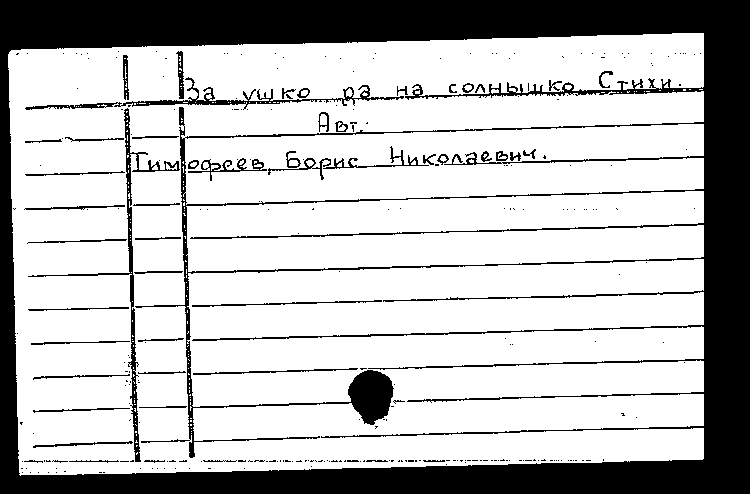 За ушко да на солнышко Стихи.
Авт.:
Тимофеев, Борис Николаевич.